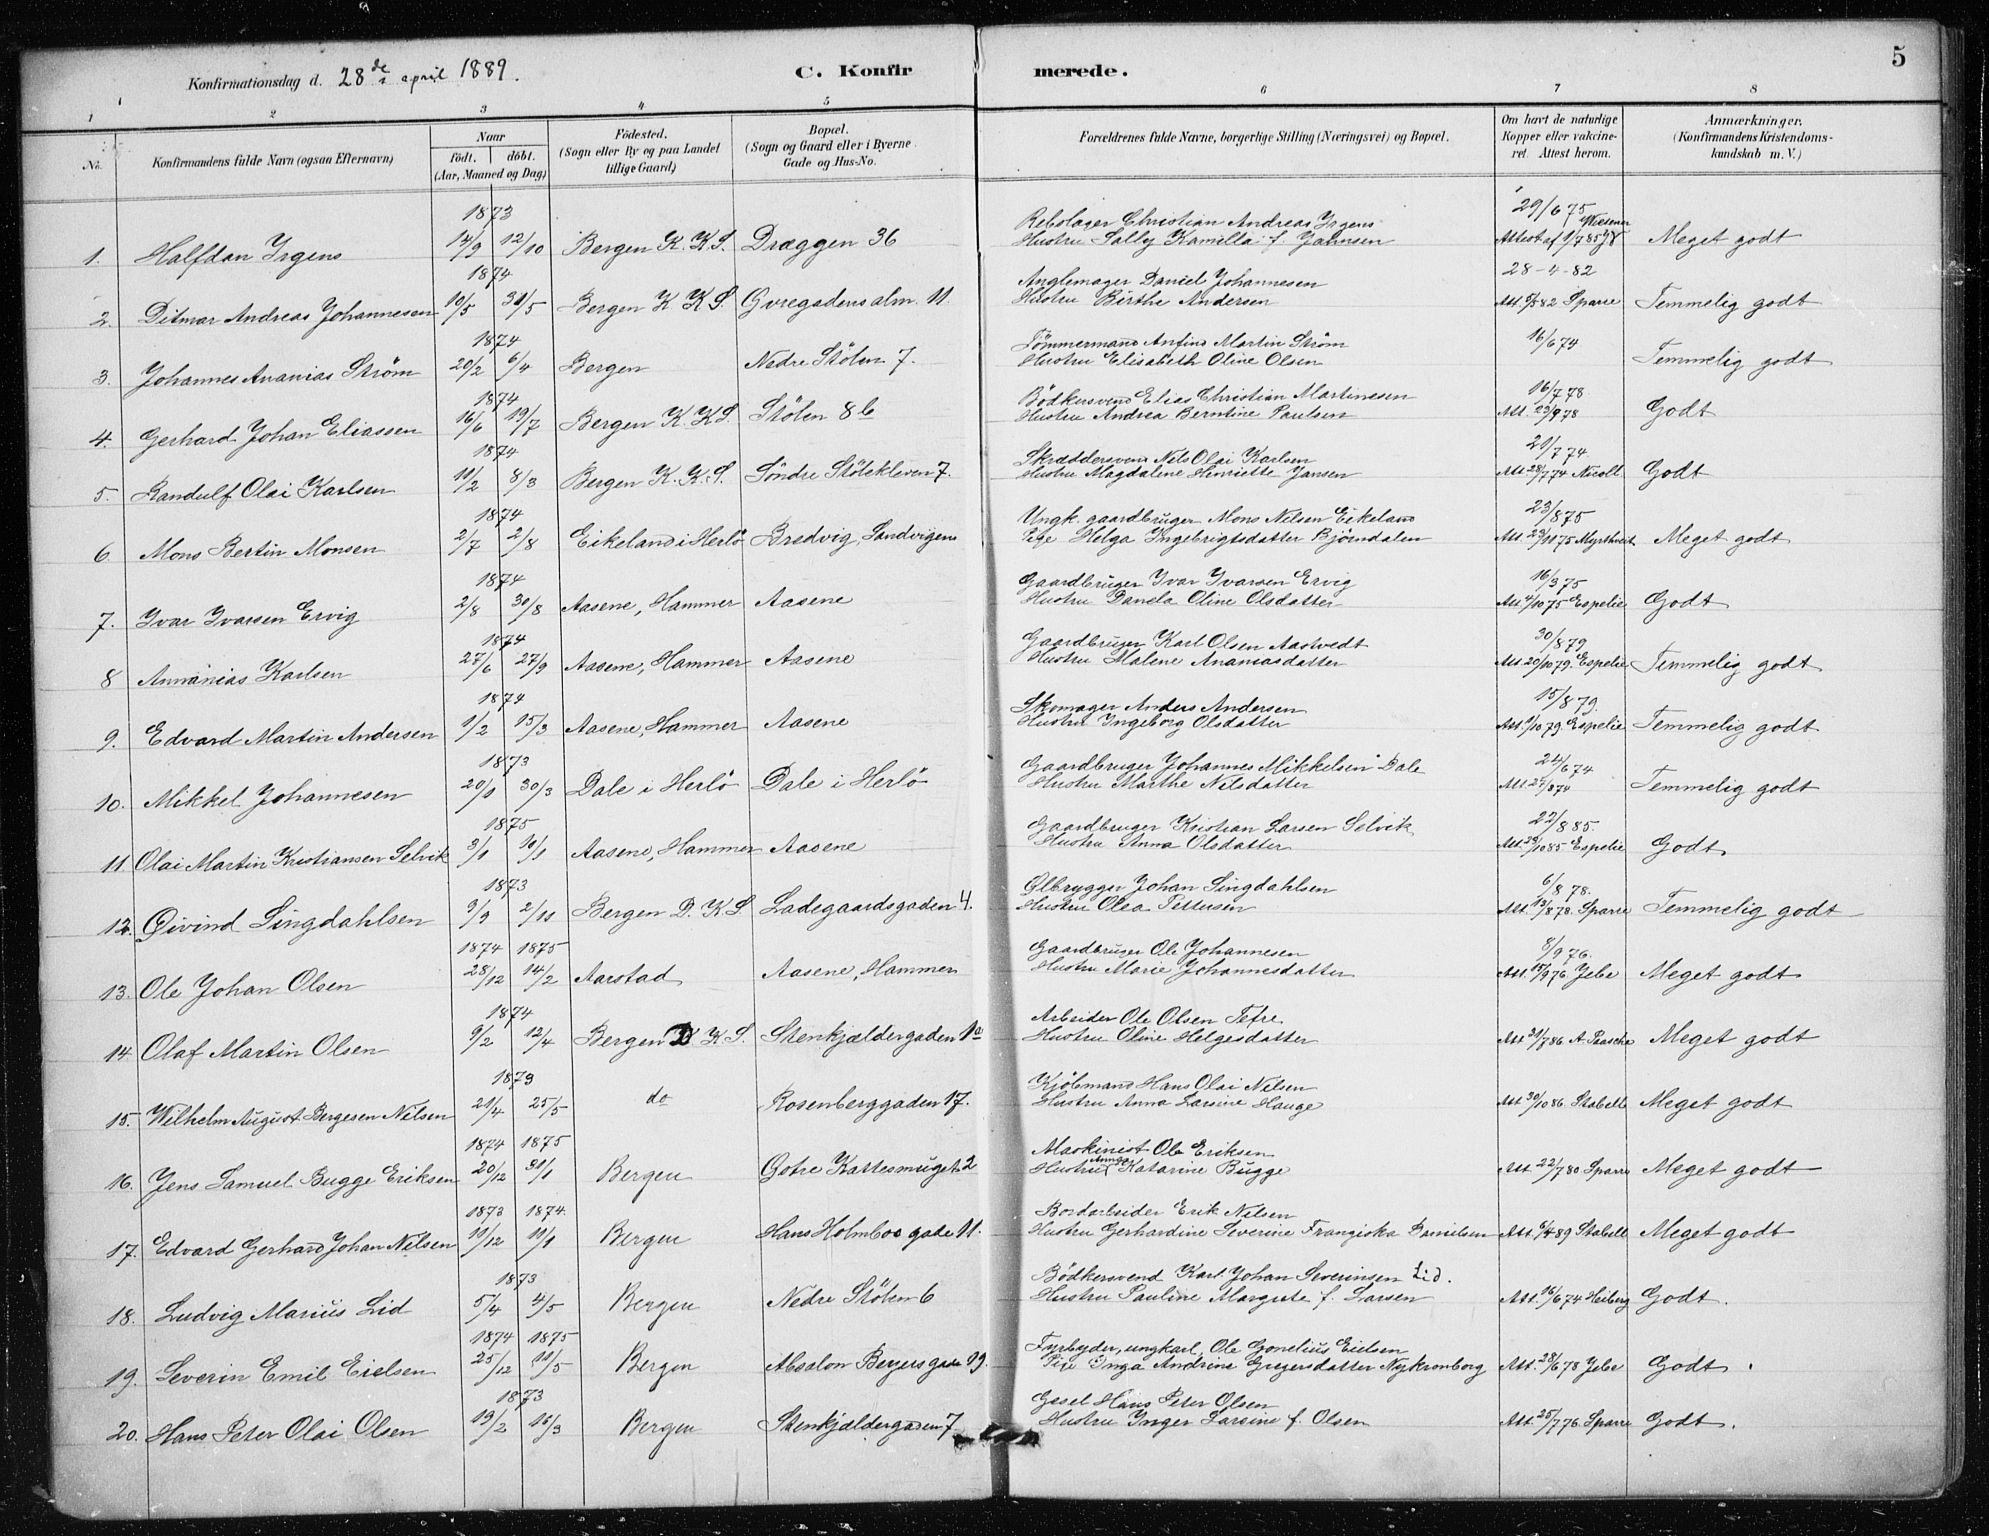 Konfirmationsdag d. 28de april 1889.
C. Konfirmerede.
5
1 2 3 4 5 6 7 8
No.
Konfirmandens fulde Navn (ogsaa Efternavn)
Naar
født. døbt.
(Aar, Maaned og Dag)
Fødested.
(Sogn eller By og paa Landet
tillige Gaard)
Bopæl.
(Sogn og Gaard eller i Byerne
Gade og Hus-No.
Forældrenes fulde Navne, borgerlige Stilling (Næringsvei) og Bopæl.
Om havt de naturlige
Kopper eller vakcine-
ret. Attest herom.
Anmærkninger.
(Konfirmandens Kristendoms-
kundskab m. V.)
1873 Rebslager Christian Andreas Irgens 29/6 75
1. Halfdan Irgens 14/9 12/10 Bergen K. K. S. Dræggen 36 Hustru Sally Kamilla f. Jahnsen Attest af 1/7 85 Wiesener Meget godt
1874 Anglemager Daniel Johannesen 28-4-82
2. Ditmar Andreas Johannesen 19/5 31/5 Bergen K K S. Øvregadens alm. 11. Hustru Birthe Andersen Att. 5/5 82 Sparre Temmelig godt
1874 Tömmermand Anfind Martin Strøm 16/6 74
3. Johannes Ananias Strøm 20/2 6/4 Bergen Nedre Stölen 7. Hustru Elisabeth Oline Olsen Temmelig godt
1874 Bödkersvend Elias Christian Martinesen 16/7 78
4. Gerhard Johan Eliassen 16/6 19/7 Bergen K. K S. Stölen 8 b Hustru Andrea Berntine Paulsen Att. 23/9 78 Godt
1874 Skræddersvend Nils Olai Karlsen 21/7 74
5. Randulf Olai Karlsen 11/2 8/3 Bergen K. K. S. Söndre Stölekleven 7. Hustru Magdalene Henriette Jansen Att. 28/7 74 Nicoll. Godt
1874 Ungk. gaardbruger Mons Nilsen Eikeland 23/8 75
6. Mons Bertin Monsen 2/7 2/8 Eikeland i Herlö Bredvig, Sandvigen Pige Helga Ingebrigtsdatter Björndalen Att. 23/11 75 Myrthveit Meget godt
1874 Gaardbruger Ivar Ivarsen Ervig 16/3 75
7. Ivar Ivarsen Ervig 2/8 30/8 Aasene, Hammer Aasene Hustru Danela Oline Olsdatter Att. 4/10 75 Espelie Godt
1874 Gaardbruger Karl Olsen Aastvedt 30/8 79
8 Annanias Karlsen 27/6 27/9 Aasene, Hammer Aasene Hustru Malene Ananiasdatter Att. 20/10 79. Espelie Temmelig godt
1874 Skomager Anders Andersen 15/8 79.
9. Edvard Martin Andersen 1/2 15/3 Aasene, Hammer Aasene Hustru Ingeborg Olsdatter Att. 1/10 79 Espelie Temmelig godt
1873 Gaardbruger Johannes Mikkelsen Dale 24/6 74
10. Mikkel Johannesen 20/1 30/3 Dale i Herlö Dale i Herlö Hustru Marthe Nilsdatter Att. 27/8 74 Temmelig godt
1875 Gaardbruger Kristian Larsen Selvik 22/8 85.
11 Olai Martin Kristiansen Selvik 3/1 10/1 Aasene, Hammer Aasene Hustru Anna Olsdatter Att. 29/10 85 Espelie Godt.
1873 Ølbrygger Johan Singdahlsen 6/8 78.
12. Øivind Singdahlsen 9/9 2/11 Bergen D. K S. Ladegaardsgaden 4. Hustru Olea Pettersen Att. 13/8 78. Sparre Temmelig godt
1874 1875 Gaardbruger Ole Johannesen 8/9 76.
13. Ole Johan Olsen 28/12 14/2 Aarstad Aasene, Hammer Hustru Marie Johannesdatter Att. 15/9 76 Jebe Meget godt
1874 Arbeider Ole Olsen Tefre
14. Olaf Martin Olsen 9/2 12/4 Bergen D K S. Stenkjældergaden 1a Hustru Oline Helgesdatter Att 31/7 86 A. Paasche Meget godt
1873 Kjöbmand Hans Olai Nilsen
15. Wilhelm August Bergesen Nilsen 21/4 25/5 do Rosenberggaden 17. Hustru Anna Larsine Hauge Att. 30/10 86. Stabell Meget godt
1874 1875 Maskinist Ole Eriksen
16. Jens Samuel Bugge Eriksen 20/12 31/1 Bergen Østre Kattesmuget 2 Hustru Annga Katarine Bugge Att. 22/7 80 Sparre Meget godt
1873 1874. Bordarbeider Erik Nilsen
17. Edvard Gerhard Johan Nilsen 11/12 11/1 Bergen Hans Holmboes gade 11. Hustru Gerhardine Severine Frangiska Danielsen Att. 6/4 89 Stabell Meget godt
1873 Bödkersvend Karl Johan Severinsen Lid.
18. Ludvig Marius Lid 5/4 4/5 Bergen Nedre Stölen 6 Hustru Pauline Margrete f. Larsen Att. 16/6 74 Heiberg Godt.
1874 1875 Fyrbøder, ungkarl, Ole Gonelius Eielsen
19. Severin Emil Eielsen 25/12 11/5 Bergen Absalon Beyers gade 19. Pige Inga Andrine Gregersdatter Nykronborg Att. 28/6 78 Jebe Godt.
1873 Gesel Hans Peter Olsen
20. Hans Peter Olai Olsen 19/2 16/3 Bergen Stenkjældergaden 7. Hustru Inger Larsine f. Olsen Att. 25/7 76. Sparre Godt.